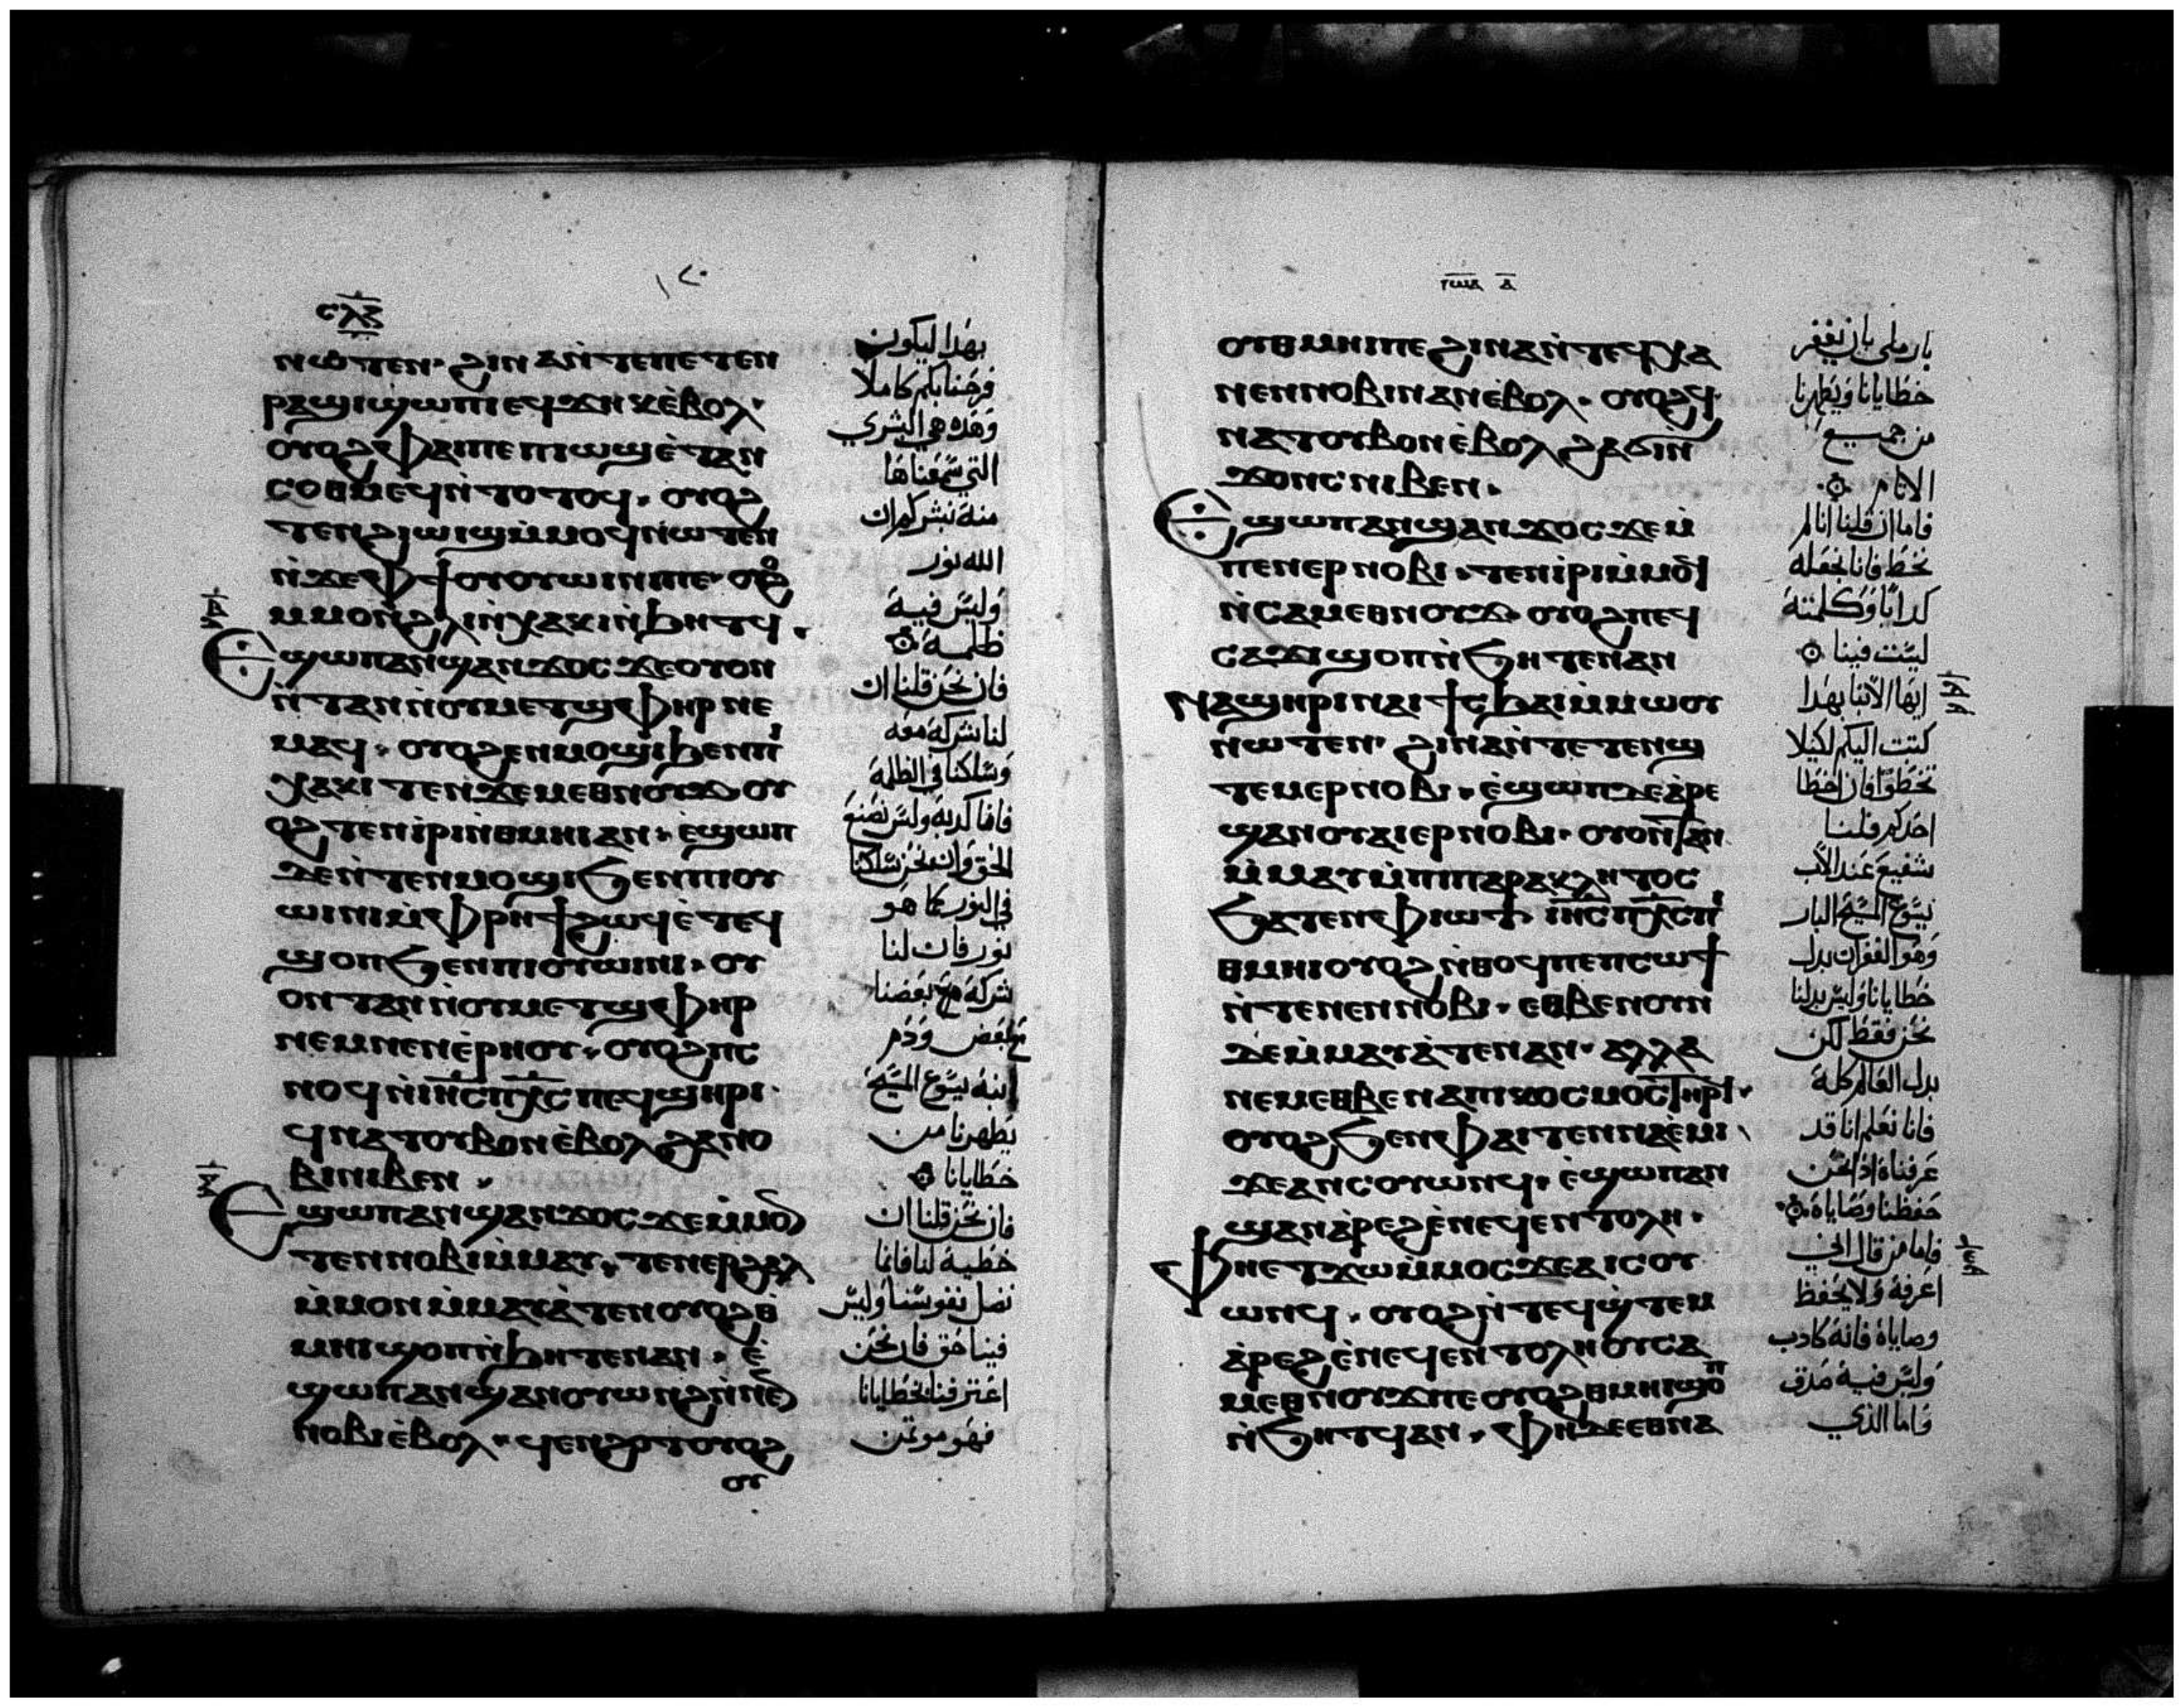 ⲥⲗⲍ
ⲛⲱⲧⲉⲛ· ϩⲓⲛⲁⲛ̀ⲧⲉⲡⲉⲧⲉⲛ
ⲣⲁϣⲓϣⲱⲡⲓⲉϥϫⲏⲕⲉ̀ⲃⲟⲗ·
ⲟⲩⲟϩⲫⲁⲓⲡⲉⲡⲓⲱϣⲉ̀ⲧⲁⲛ
ⲥⲟⲑⲙⲉϥⲛ̀ⲧⲟⲧⲟⲩ· ⲟⲩⲟϩ
ⲧⲉⲛϩⲓⲱⲓϣⲙ̀ⲙⲟϥⲛⲱⲧⲉⲛ
ⲛ̀ϫⲉⲫϯⲟⲩⲟⲩⲱⲓⲛⲓⲡⲉ· ⲟⲩⲟϩ
ⲙⲙⲟⲛϩⲗⲓⲛ̀ⲭⲁⲕⲓⲛ̀ϧⲏⲧϥ·
Ⲉϣⲱⲡⲁⲛϣⲁⲛϫⲟⲥϫⲉⲟⲩⲟⲛ
ⲛ̀ⲧⲁⲛⲛ̀ⲟⲩⲙⲉⲧϣⲫⲏⲣⲛⲉ
ⲙⲁϥ· ⲟⲩⲟϩⲉⲛⲙⲟϣⲓϧⲉⲛⲡⲓ
ⲭⲁⲕⲓ ⲧⲉⲛϫⲉⲙⲉⲑⲛⲟⲩϫ ⲟⲩ
ⲟϩ ⲧⲉⲛⲓ̀ⲣⲓⲛ̀ⲑⲙⲏⲓⲁⲛ· ⲉ̀ϣⲱⲡ
ⲇⲉⲛ̀ⲧⲉⲛⲙⲟϣⲓϧⲉⲛⲡⲓⲟⲩ
ⲱⲓⲛⲓⲙ̀ⲫⲣⲏϯϩⲱϥⲉ̀ⲧⲉϥ
ϣⲟⲡϧⲉⲛⲡⲓⲟⲩⲱⲓⲛⲓ· ⲟⲩ
ⲟⲛⲧⲁⲛⲛ̀ⲟⲩⲙⲉⲧϣⲫⲏⲣ
ⲛⲉⲙⲛⲉⲛⲉ̀ⲣⲏⲟⲩ· ⲟⲩⲟϩⲡⲥ
ⲛⲟϥⲛ̀ⲓⲏⲥⲡⲭⲥⲡⲉϥϣⲏⲣⲓ·
ϥⲛⲁⲧⲟⲩⲃⲟⲛⲉ̀ⲃⲟⲗϩⲁⲛⲟ
ⲃⲓⲛⲓⲃⲉⲛ·
Ⲉϣⲱⲡⲁⲛϣⲁⲛϫⲟⲥϫⲉⲙ̀ⲙⲟⲛ
ⲧⲉⲛⲛⲟⲃⲓⲙ̀ⲙⲁⲩ· ⲧⲉⲛⲉⲣϩⲁⲗ
ⲙ̀ⲙⲟⲛⲙ̀ⲙⲁⲩⲁ̀ⲧⲉⲛⲟⲩⲟϩⲑ
ⲙⲏⲓϣⲟⲡⲛ̀ϧⲏⲧⲉⲛⲁⲛ· ⲉ̀
ϣⲱⲡⲁⲛϣⲁⲛⲟⲩⲱⲛϩⲛ̀ⲛⲉⲛ
ⲛⲟⲃⲓⲉ̀ⲃⲟⲗ· ϥⲉⲛϩⲟⲧⲟⲩⲟϩ
ⲟⲩ
١٢٠
بهدا ليكون
فرحنا بكم كاملا
وهده هي البشري
التي سمعناها
منه نبشركم ان
الله نور
وليس فيه
ظلمه
فان نحن قلنا ان
لنا شركه معه
وسلكنا في الظلمه
فانا كدبه وليس نصنع
الحق وان نحن سلكنا
في النور كما هو
نور فان لنا
شركه مع بعضنا
بعض ودم
ابنه يسوع المسيح
يطهرنا من
خطايانا
فان نحن قلنا ان
خطيه لنا فانما
نضل نفوسنا وليس
فينا حق فان نحن
اعترفنا بخطايانا
فهو موتمن
ⲓⲱⲁ ⲁ
ⲟⲩⲑⲙⲏⲓⲡⲉϩⲓⲛⲁⲛ̀ⲧⲉϥⲭⲁ
ⲛⲉⲛⲛⲟⲃⲓⲛⲁⲛⲉ̀ⲃⲟⲗ· ⲟⲩⲟϩϥ
ⲛⲁⲧⲟⲩⲃⲟⲛⲉ̀ⲃⲟⲗϩⲁϭⲓⲛ
ϫⲟⲛⲥⲛⲓⲃⲉⲛ·
Ⲉϣⲱⲡⲁⲛϣⲁⲛϫⲟⲥϫⲉⲙ̀
ⲡⲉⲛⲉⲣⲛⲟⲃⲓ· ⲧⲉⲛⲓ̀ⲣⲓⲙ̀ⲙⲟϥ
ⲛ̀ⲥⲁⲙⲉⲑⲛⲟⲩϫ· ⲟⲩⲟϩⲡⲉϥ
ⲥⲁϫⲓϣⲟⲡⲛ̀ϧⲏⲧⲉⲛⲁⲛ
Ⲛⲁϣⲏⲣⲓⲛⲁⲓϯⲥϧⲁⲓⲙ̀ⲙⲱⲟⲩ
ⲛⲱⲧⲉⲛ· ϩⲓⲛⲁⲛ̀ⲧⲉⲧⲉⲛϣ
ⲧⲉⲙⲉⲣⲛⲟⲃⲓ· ⲉ̀ϣⲱⲡⲇⲉⲁ̀ⲣⲉ
ϣⲁⲛⲟⲩⲁⲓⲉⲣⲛⲟⲃⲓ· ⲟⲩⲟⲛⲧⲁⲛ
ⲙ̀ⲙⲁⲩⲙ̀ⲡⲓⲡⲁⲣⲁⲕⲗⲏⲧⲟⲥ
ϧⲁⲧⲉⲛⲫⲓⲱⲧ ⲓⲏⲥⲡⲭⲥⲡⲓ
ⲑⲙⲏⲓⲟⲩⲟϩⲛ̀ⲑⲟϥⲡⲉⲡⲥⲱϯ
ⲛ̀ⲧⲉⲛⲉⲛⲛⲟⲃⲓ· ⲉⲑⲃⲉⲛⲟⲩⲛ
ⲇⲉⲙ̀ⲙⲁⲩⲁ̀ⲧⲉⲛⲁⲛ· ⲁⲗⲗⲁ
ⲛⲉⲙⲉⲑⲃⲉⲛⲁⲡⲓⲕⲟⲥⲙⲟⲥⲧⲏⲣϥ·
ⲟⲩⲟϩϧⲉⲛⲫⲁⲓⲧⲉⲛⲛⲁⲉ̀ⲙⲓ
ϫⲉⲁⲛⲥⲟⲩⲱⲛϥ· ⲉ̀ϣⲱⲡⲁⲛ
ϣⲁⲛⲁ̀ⲣⲉϩⲉ̀ⲛⲉϥⲉⲛⲧⲟⲗⲏ·
Ⲫⲏⲉⲧϫⲱⲙ̀ⲙⲟⲥϫⲉⲁⲓⲥⲟⲩ
ⲱⲛϥ· ⲟⲩⲟϩⲛ̀ⲧⲉϥϣ̀ⲧⲉⲙ
ⲁ̀ⲣⲉϩⲉ̀ⲛⲉϥⲉⲛⲧⲟⲗⲏⲟⲩⲥⲁ
ⲙⲉⲑⲛⲟⲩϫⲡⲉⲟⲩⲟϩⲑⲙⲏⲓϣⲟⲡ
ⲛ̀ϧⲏⲧϥⲁⲛ· ⲫⲏⲇⲉⲉⲑⲛⲁ
بار ملي بان يغفر
خطايانا ويطهرنا
من جميع
الاثام
فاما ان قلنا انا لم
نخط فانا نجعله
كدابا وكلمته
ليست فينا
ايها الابنا بهدا
كتبت اليكم لكيلا
تخطوا فان اخطا
احدكم فلنا
شفيع عند الاب
يسوع المسيح البار
وهو الغفران بدل
خطايانا وليس بدلنا
نحن فقط لكن
بدل العالم كله
فانا نعلم انا قد
عرفناه اذا نحن
حفظنا وصاياه
فاما من قال اني
اعرفه ولا يحفظ
وصاياه فانه كادب
وليس فيه صدق
واما الذي